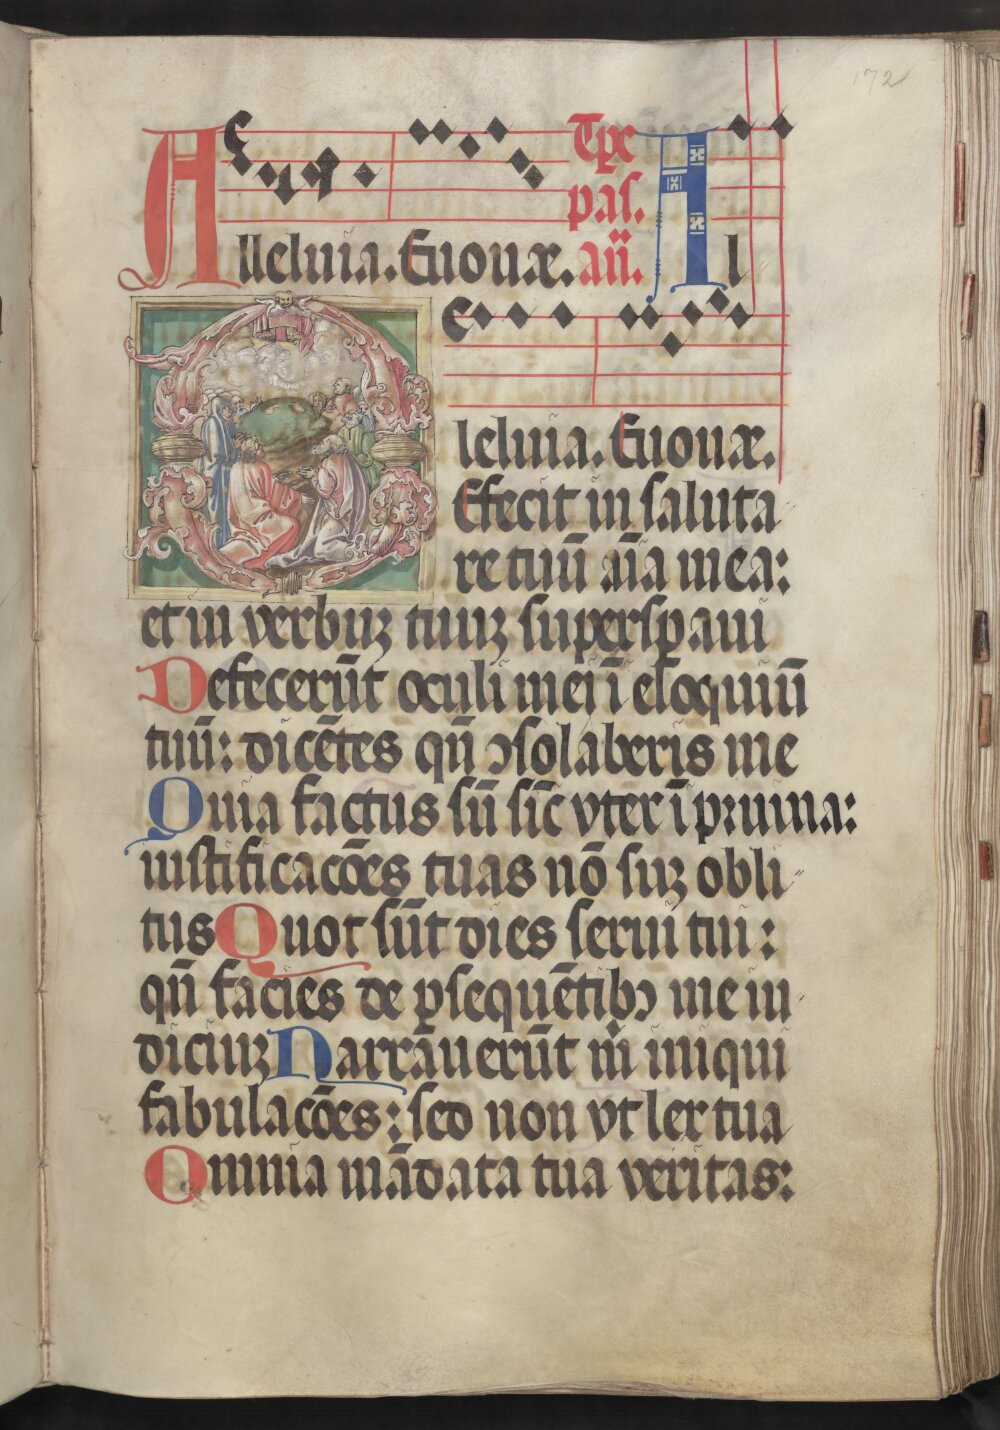 172
Alleluia. Euouæ. Tp̄e
pas.
an̄. Al
leluia. Euouæ.
Efecit in saluta
re tuū aīa mea:
et in verbuꝫ tuuꝫ supersꝑaui
Defecerūt oculi mei ī eloquiū
tuū: dicētes qn̄ ꝯsolaberis me
Quia factus sū sīc vter ī pꝛuina:
iustificacōes tuas nō suꝫ obli
tus Quot sūt dies serui tui:
qn̄ facies de ꝑsequētibꝰ me iu
diciuꝫ Narrāuerūt m̄ iniqui
fabulacōes: sed non vt lex tua
Omnia mādata tua veritas: